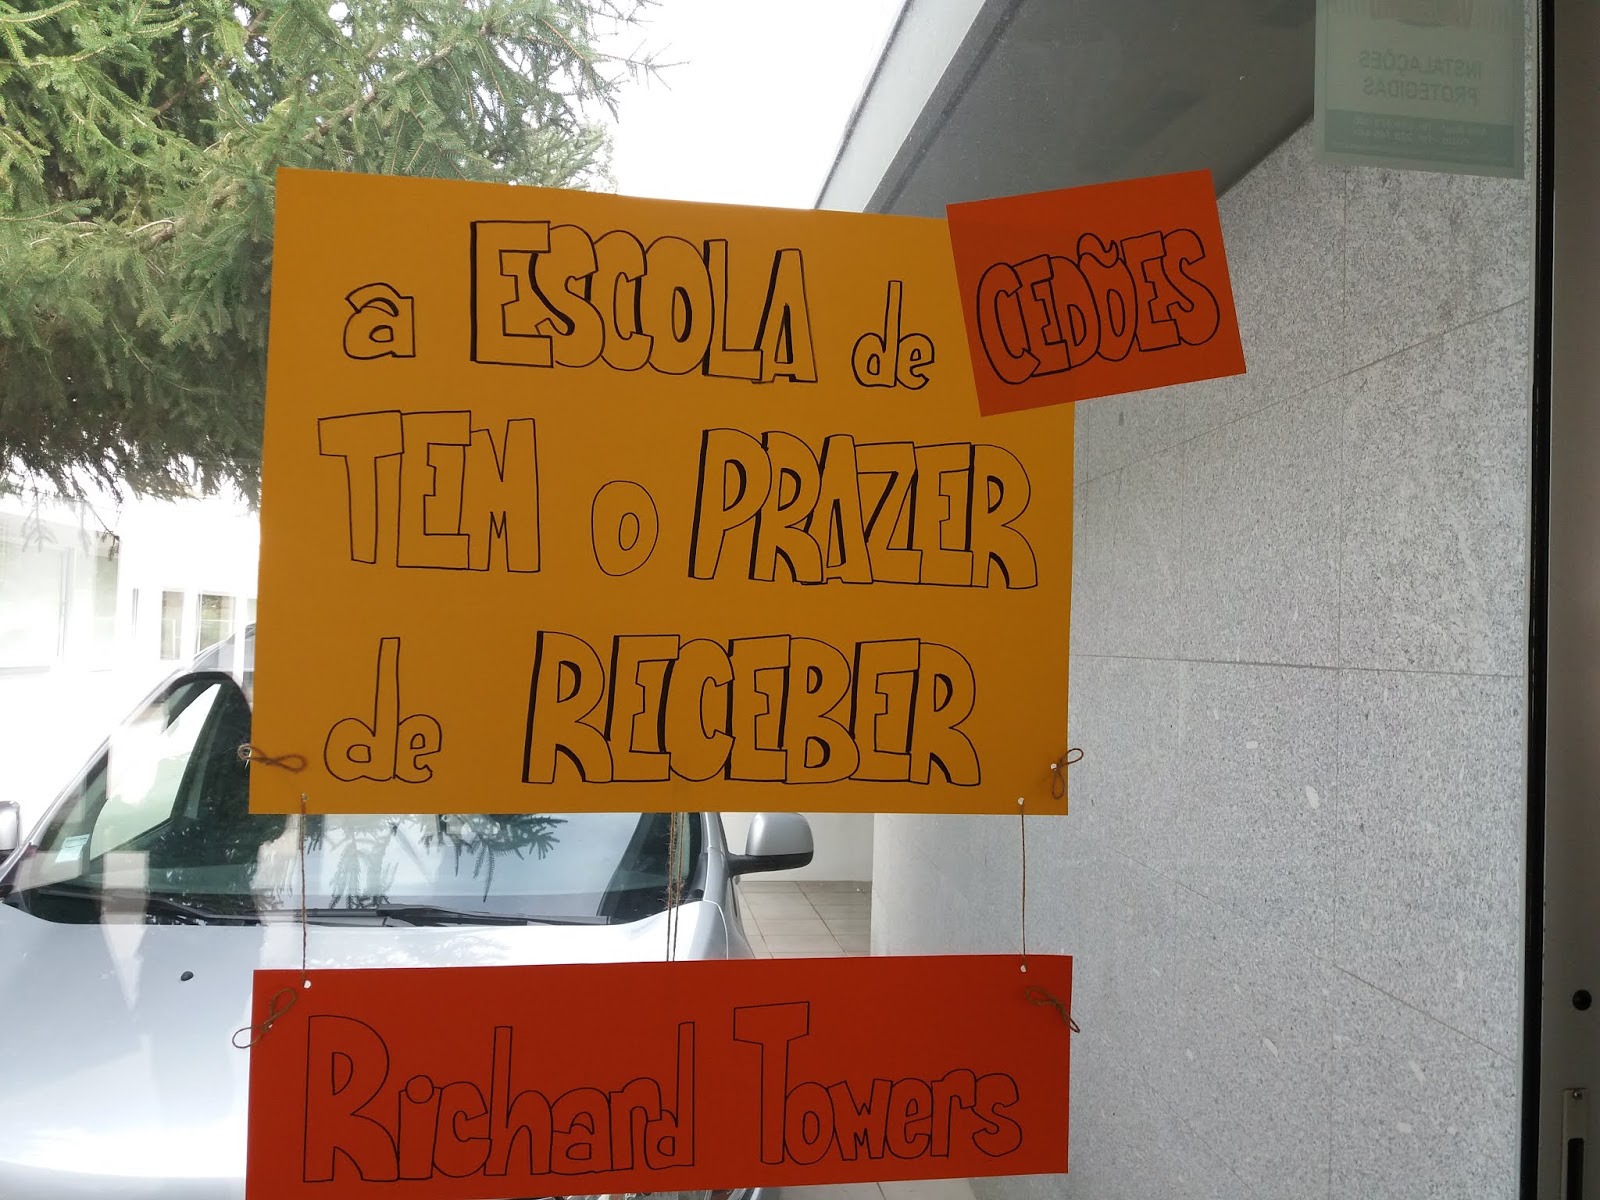 a ESCOLA de CEDÕES
TEM o PRAZER
de RECEBER
Richard Towers
INSTALAÇÕES
PROTEGIDAS